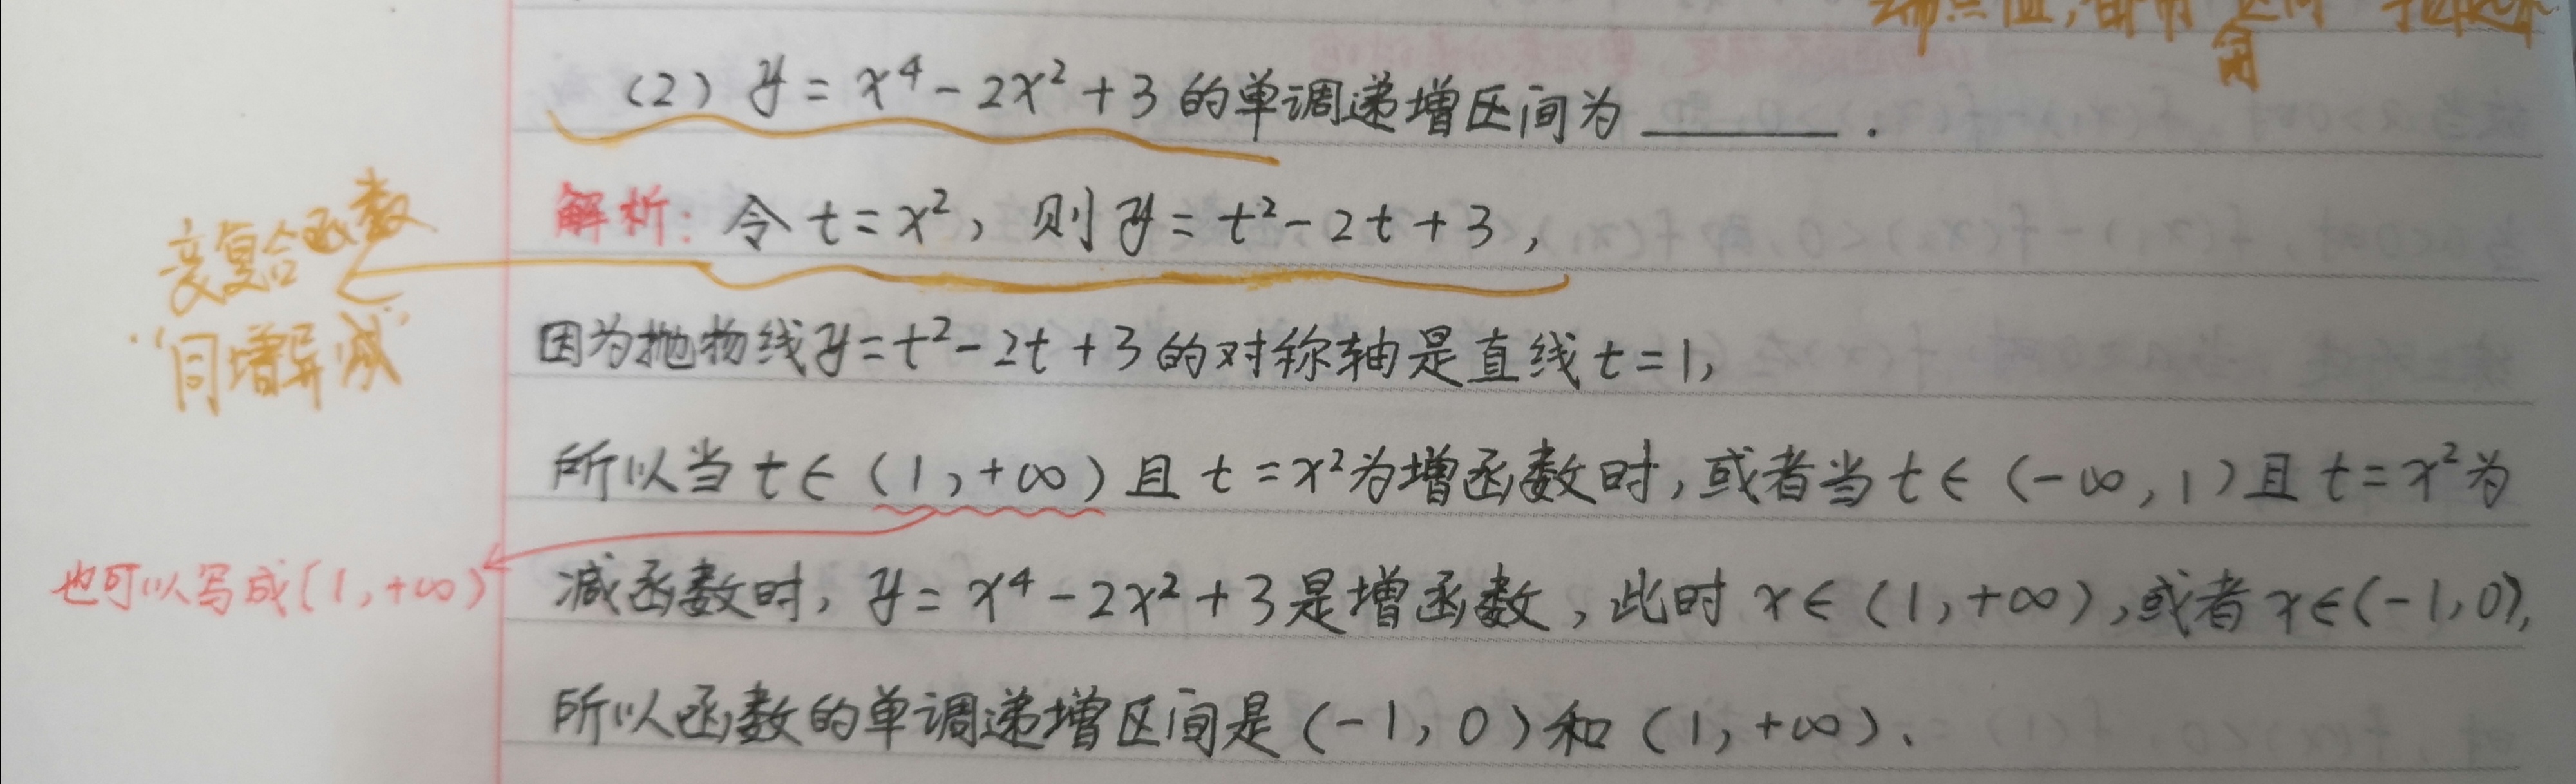 (2) y = x⁴ - 2x² + 3 的单调递增区间为 ______ .
解析: 令 t = x², 则 y = t² - 2t + 3,
变复合函数
"同增异减"
因为抛物线 y = t² - 2t + 3 的对称轴是直线 t = 1,
所以当 t ∈ (1, +∞) 且 t = x² 为增函数时, 或者当 t ∈ (-∞, 1) 且 t = x² 为
也可以写成 [1, +∞)
减函数时, y = x⁴ - 2x² + 3 是增函数, 此时 x ∈ (1, +∞), 或者 x ∈ (-1, 0),
所以函数的单调递增区间是 (-1, 0) 和 (1, +∞).